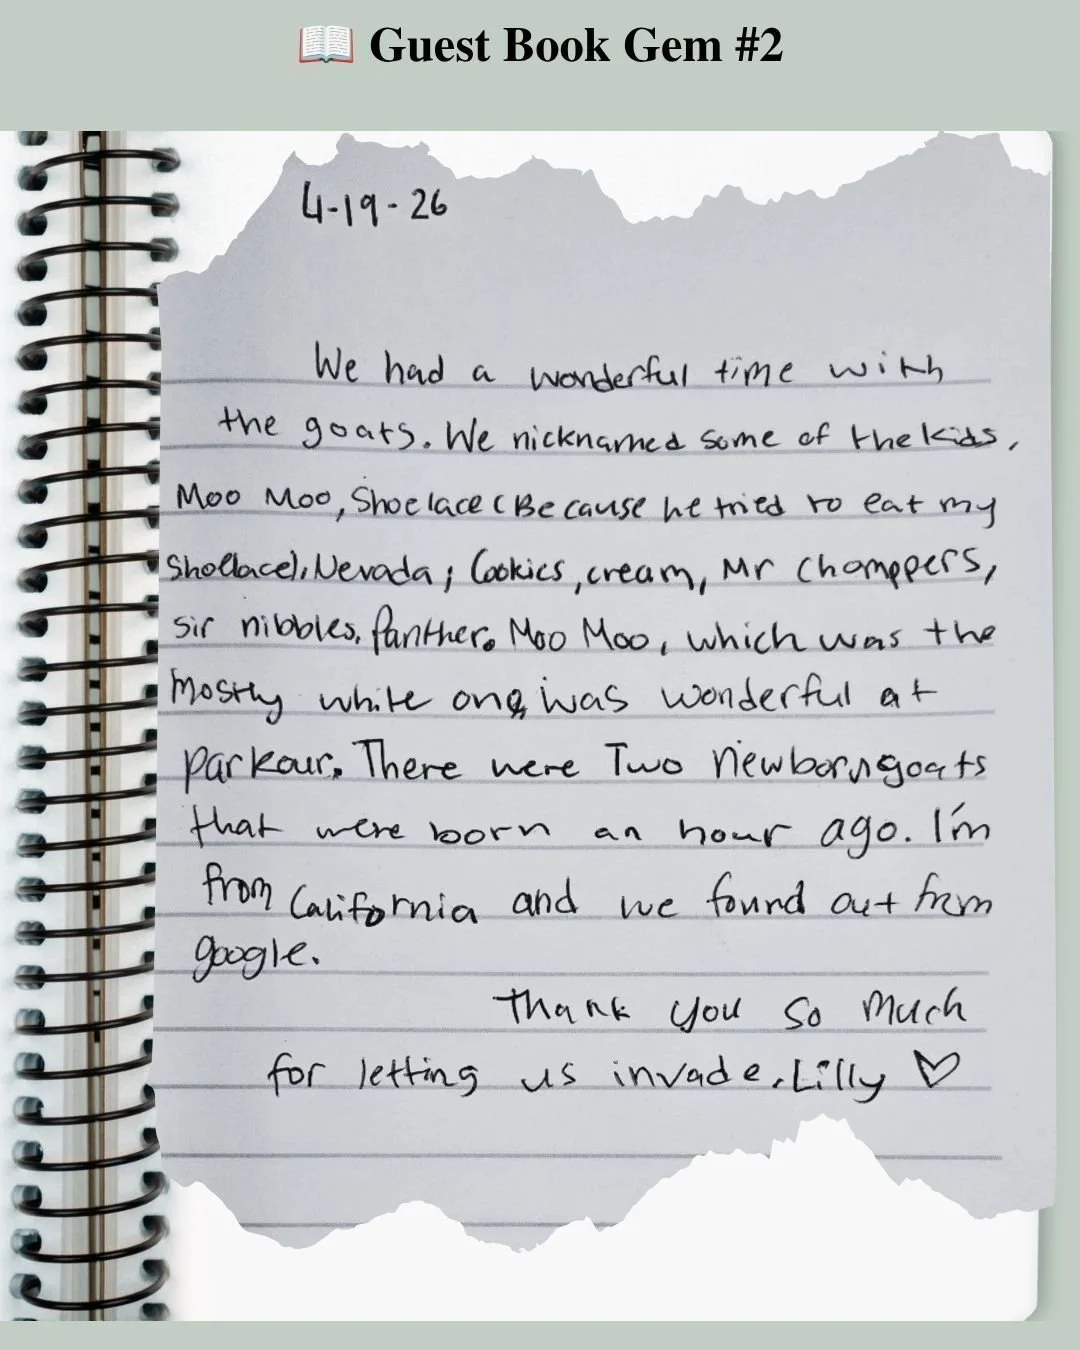 📖 Guest Book Gem #2
4-19-26
We had a wonderful time with
the goats. We nicknamed some of the kids,
Moo Moo, Shoelace (Because he tried to eat my
Shoelace), Nevada, Cookies, cream, Mr Chomppers,
sir nibbles, Panther. Moo Moo, which was the
Mostly white one, was wonderful at
parkour. There were Two newborn goats
that were born an hour ago. I'm
from California and we found out from
google.
Thank you so Much
for letting us invade, Lilly ♡